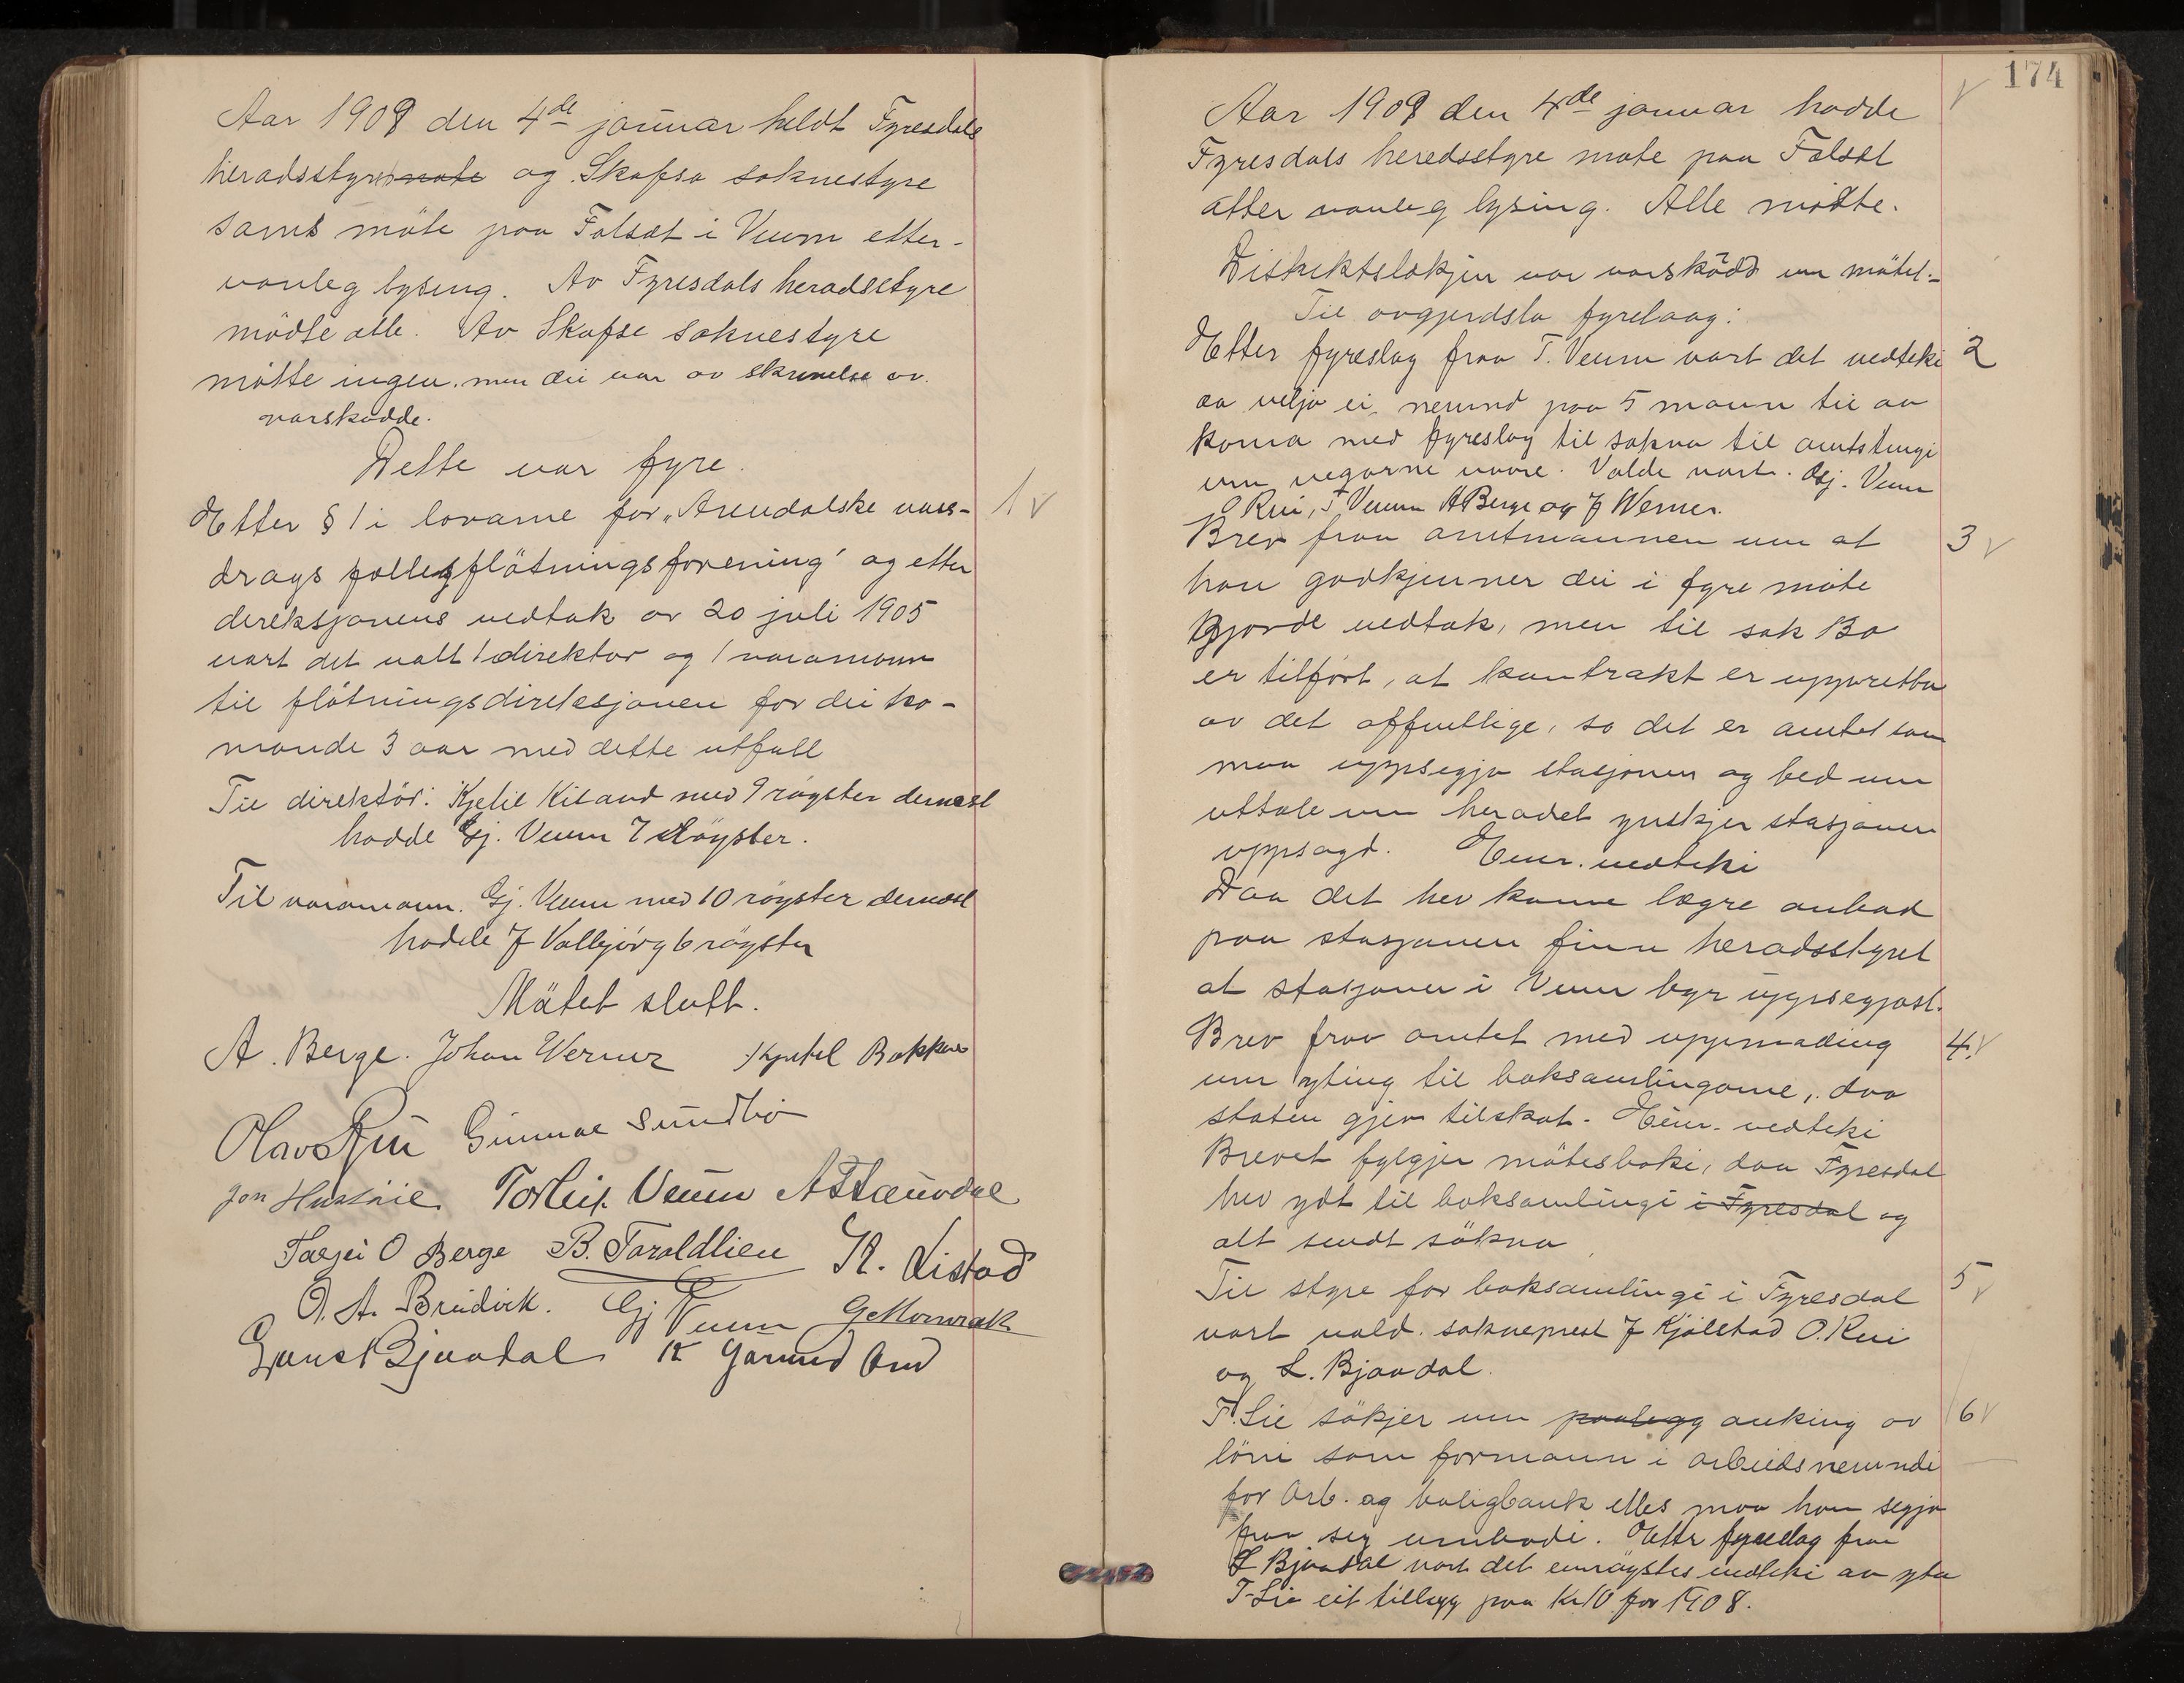 Aar 1909 den 4de januar heldt Fyresdals
heradsstyre møte og Skafsa soknestyre
sams møte paa Folsæt i Veum etter-
vanleg lysing. Av Fyresdals heradsstyre
mødte alle. Av Skafse soknestyre
møtte ingen. men dei var av skrivelse av.
varskodde.
Dette var fyre.
Etter § 1 i lovarne for „Arendalske vass- 1
drags fellesfløtningsforening' og etter
direksjonens vedtak av 20 juli 1905
vart det valt 1 direktør og 1 varamann
til fløtningsdireksjonen for dei ko-
mande 3 aar med dette utfall
Til direktør: Kjetil Kiland med 9 røyster dernæst
hadde Gj. Veum 7 røyster.
Til varamann. Gj. Veum med 10 røyster dernæst
hadde J Valbjørg 6 røyster
Møtet slutt.
A. Berge. Johan Werner Kjætil Bakken
Olav Rui Gunnar Sundbø
Jon Hustvie. Torleif. Veum
Tarjei O Berge B. Taraldlien K. Listad
O. A. Breidvik. Gj Veum G Momrak
Bjaadal K Gamund

174
Aar 1909 den 4de januar hadde
Fyresdals heredsstyre møte paa Folsæt
etter vanleg lysing. Alle møtte.
Distriktslækjen var varskødd um møtet.-
Til avgjerdsla fyrelaag:
Etter fyreslag fraa T. Veum vart det vedteki 2
aa velja ei nemnd paa 5 mann til aa
koma med fyreslag til sokna til amtstingi
um vegarne vaare. Valde vart. Gj. Veum
O Rui, T Veum A Berge og J Werner.
Brev fraa amtmannen um at 3
han godkjenner dei i fyre møte
gjorde vedtak, men til sak 13a
er tilført, at kontrakt er uppretta
av det offentlige, so det er amtet som
maa uppsegja stasjonen og bed um
uttale um heradet ynskjer stasjonen
uppsagd. Einr. vedteki
Daa det hev kome lægre anbod
paa stasjonen finn heradsstyret
at stasjonen i Veum bør uppsegjast.
Brev fraa amtet med uppmading 4.
um yting til boksamlingarne, daa
staten gjev tilskot. Einr. vedteki
Brevet fylgjer møtesboki, daa Fyresdal
hev ydt til boksamlingi i Fyresdal og
alt sendt søkna
Til styre for boksamlingi i Fyresdal 5
vart vald. sokneprest J Kjølstad O. Rui
og L. Bjaadal.
T. Lie søkjer um paalegg auking av 6
løni som formann i arbeidsnemndi
for Arb. og boligbank elles maa han segja
fraa seg umbodi. Etter fyreslag fraa
L Bjaadal vart det einrøystes vedteki aa yta
T. Lie eit tillegg paa Kr 10 for 1908.